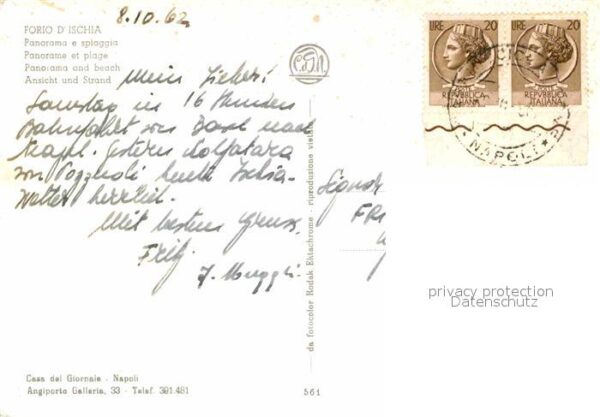 8.10.62
FORIO D'ISCHIA
Panorama e spiaggia
Panorame et plage
Panorama and beach
Ansicht und Strand
Mein Lieber!
Samstag in 16 Stunden
Bahnfahrt von Basel nach
Neapel. Gestern Solfatara
von Pozzuoli heute Ischia.
Wetter herrlich.
Mit besten Gruss
Fritz
LIRE 20
LIRE 20
REPVBBLICA
ITALIANA
REPVBBLICA
ITALIANA
NAPOLI
Signor
FR
da fotocolor Kodak Ektachrome - riproduzione vietata
privacy protection
Datenschutz
Casa del Giornale - Napoli
Angiporto Galleria, 33 - Telef. 391.481
561